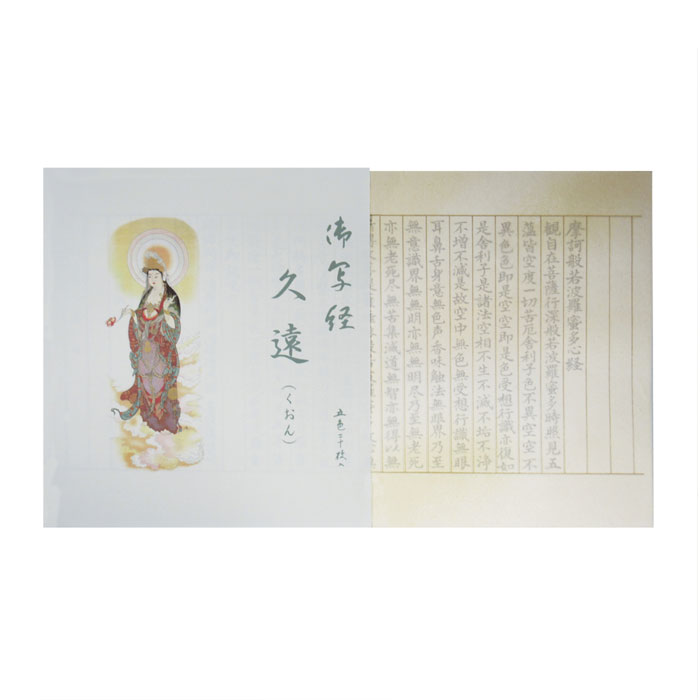 御写経
久遠
(くおん)
五色二十枚入
摩訶般若波羅蜜多心経
観自在菩薩行深般若波羅蜜多時照見五
蘊皆空度一切苦厄舎利子色不異空空不
異色色即是空空即是色受想行識亦復如
是舎利子是諸法空相不生不滅不垢不浄
不増不減是故空中無色無受想行識無眼
耳鼻舌身意無色声香味触法無眼界乃至
無意識界無無明亦無無明尽乃至無老死
亦無老死尽無苦集滅道無智亦無得以無